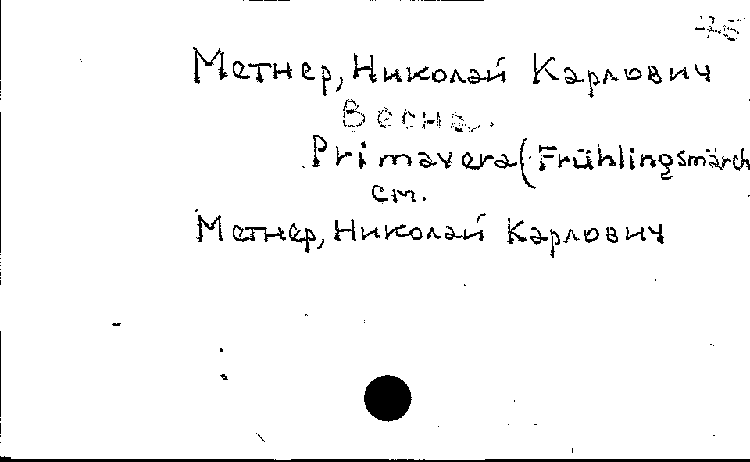 75
Метнер, Николай Карлович
Весна.
Primavera (Frühlingsmärch
см.
Метнер, Николай Карлович